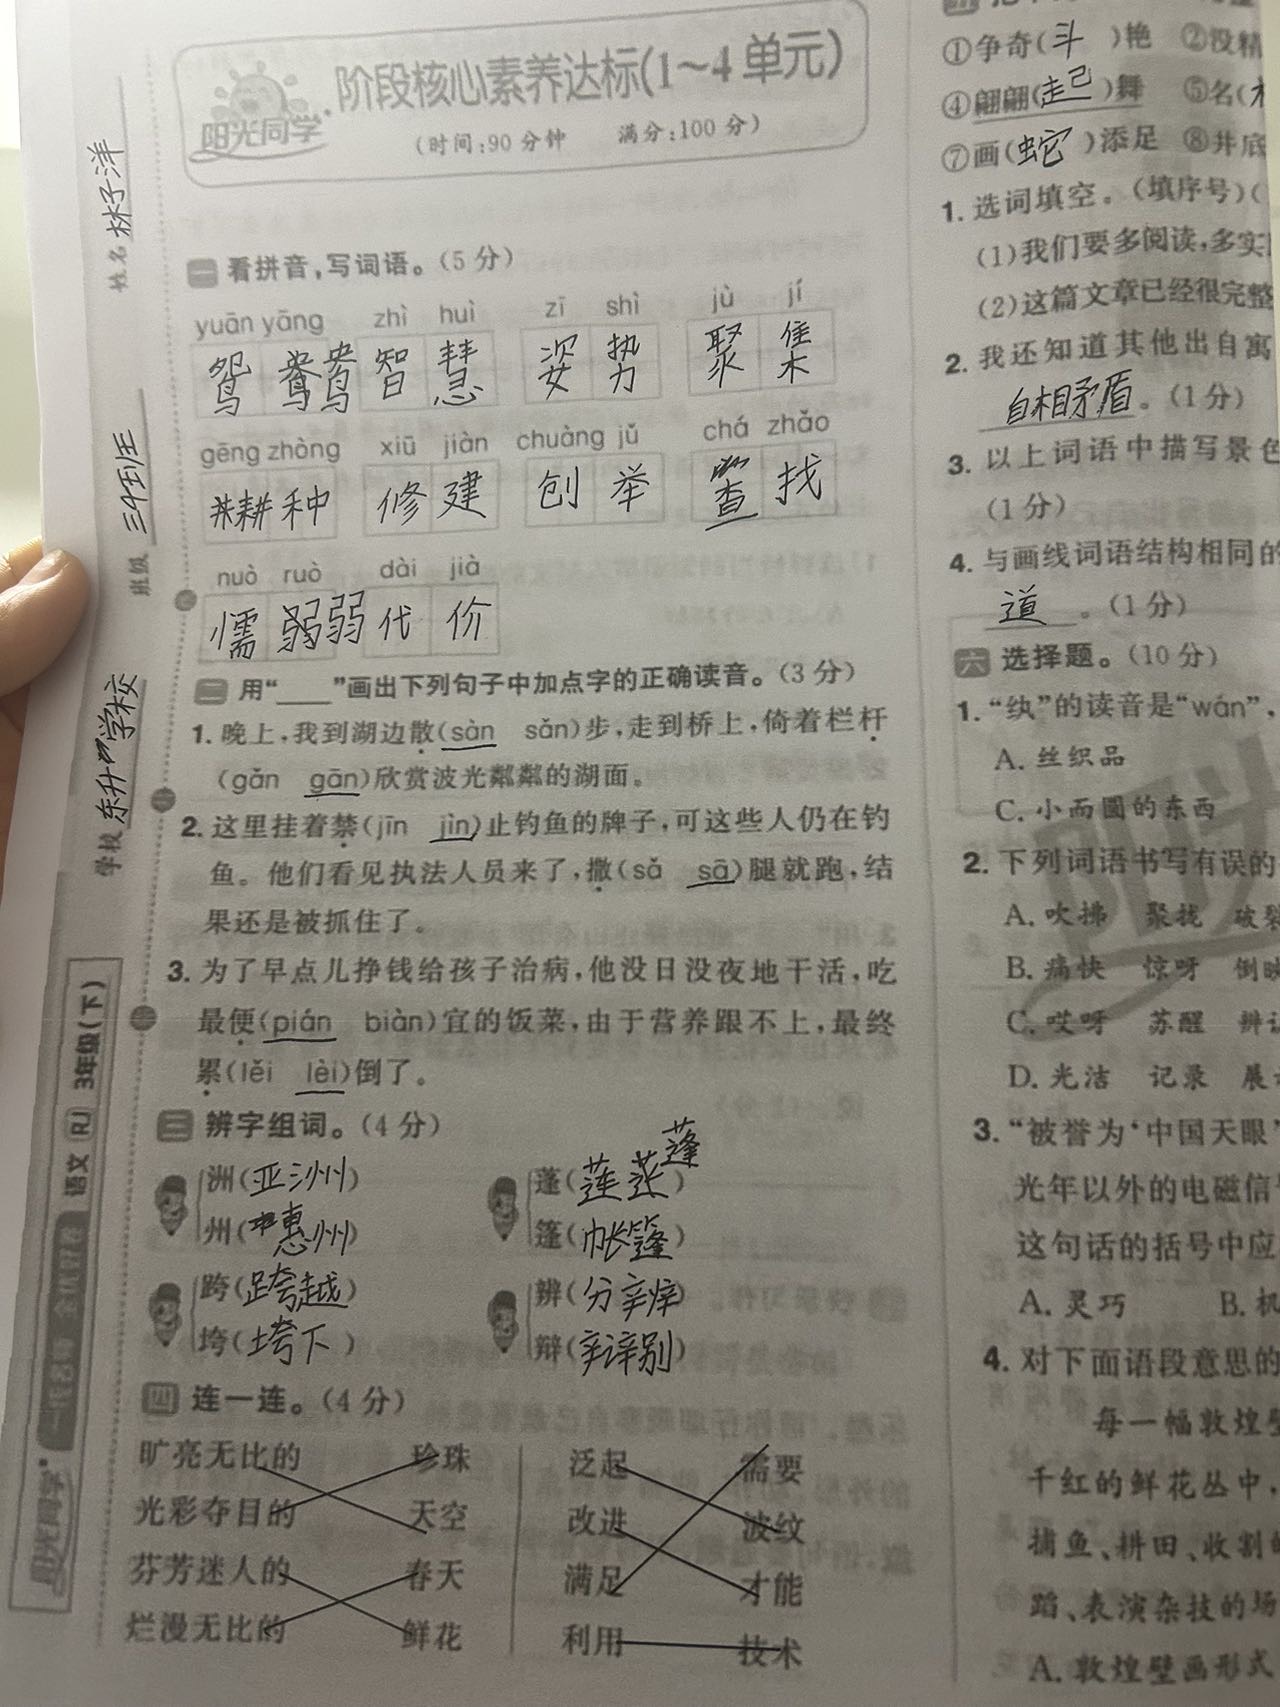 阶段核心素养达标(1~4单元)
阳光同学
(时间:90分钟 满分:100分)
姓名 林子洋
班级
学校 东升学校
阳光同学
语文 RJ 3年级(下)
一 看拼音,写词语。(5分)
yuān yāng zhì huì zī shì jù jí
鸳 鸯 智 慧 姿 势 聚 集
gēng zhòng xiū jiàn chuàng jǔ chá zhǎo
耕 种 修 建 创 举 查 找
nuò ruò dài jià
懦 弱 弱 代 价
二 用“____”画出下列句子中加点字的正确读音。(3分)
1. 晚上,我到湖边散(sàn sǎn)步,走到桥上,倚着栏杆
(gǎn gān)欣赏波光粼粼的湖面。
2. 这里挂着禁(jīn jìn)止钓鱼的牌子,可这些人仍在钓
鱼。他们看见执法人员来了,撒(sǎ sā)腿就跑,结
果还是被抓住了。
3. 为了早点儿挣钱给孩子治病,他没日没夜地干活,吃
最便(pián biàn)宜的饭菜,由于营养跟不上,最终
累(lěi lèi)倒了。
三 辨字组词。(4分)
洲(亚洲) 蓬(莲蓬)
州(惠州) 篷(帐篷)
跨(跨越) 辨(分辨)
垮(垮下) 辩(辩别)
四 连一连。(4分)
旷亮无比的 珍珠 泛起 需要
光彩夺目的 天空 改进 波纹
芬芳迷人的 春天 满足 才能
烂漫无比的 鲜花 利用 技术
①争奇(斗)艳 ②没精
④翩翩(起)舞 ⑤名(
⑦画(蛇)添足 ⑧井底
1. 选词填空。(填序号)(
(1)我们要多阅读,多实
(2)这篇文章已经很完整
2. 我还知道其他出自寓
自相矛盾。(1分)
3. 以上词语中描写景色
(1分)
4. 与画线词语结构相同的
道。(1分)
六 选择题。(10分)
1. “纨”的读音是“wán”,
A. 丝织品
C. 小而圆的东西
2. 下列词语书写有误的
A. 吹拂 聚拢 破裂
B. 痛快 惊呀 倒映
C. 哎呀 苏醒 辨认
D. 光洁 记录 展
3. “被誉为‘中国天眼’
光年以外的电磁信
这句话的括号中应
A. 灵巧 B. 机
4. 对下面语段意思的
每一幅敦煌壁
千红的鲜花丛中,
捕鱼、耕田、收割
蹈、表演杂技的场
A. 敦煌壁画形式